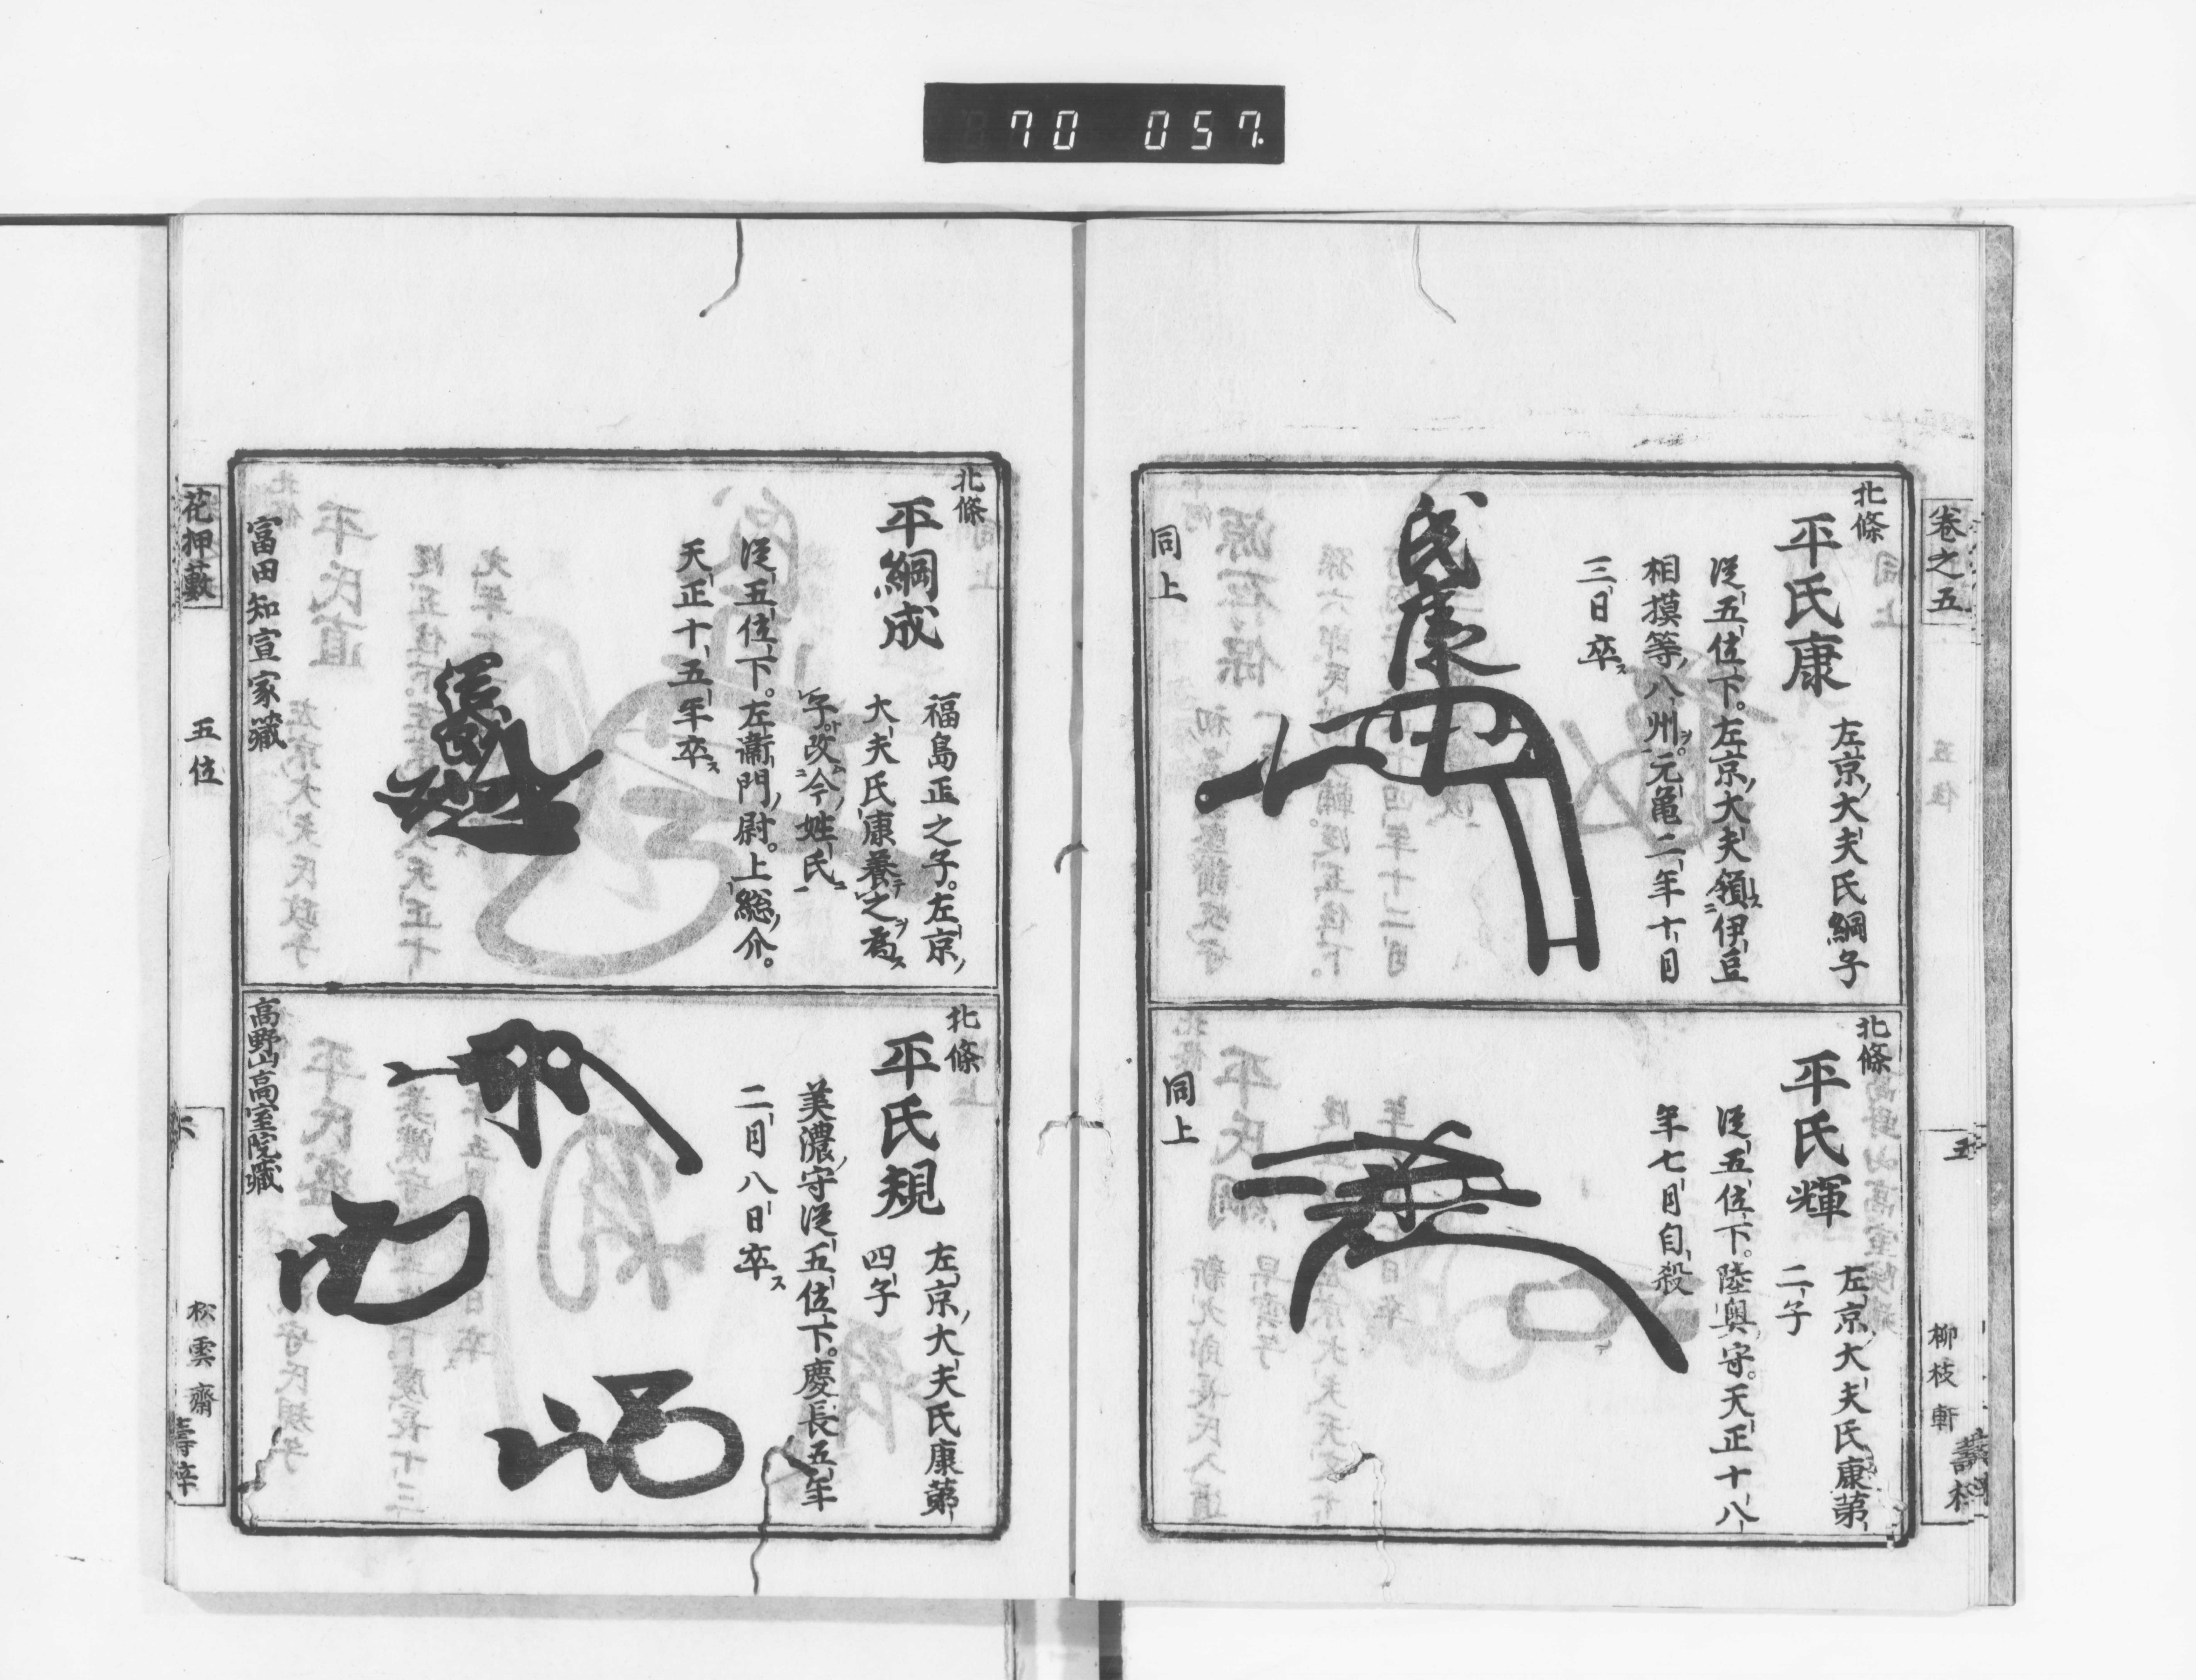 70 057.
卷之五
五
柳枝軒
北條
平氏康
左京大夫氏綱子
從五位下。左京大夫領伊豆
相摸等八州。元亀二年十月
三日卒
氏康
同上
北條
平氏輝
左京大夫氏康第
二子
從五位下。陸奥守。天正十八
年七月自殺
同上
北條
平綱成
福島正之子。左京
大夫氏康養之為
子。改今姓氏
從五位下。左衞門尉。上総介。
天正十五年卒
富田知宣家藏
北條
平氏規
左京大夫氏康第
四子
美濃守從五位下。慶長五年
二月八日卒
高野山高室院藏
花押藪
五位
松雲齋